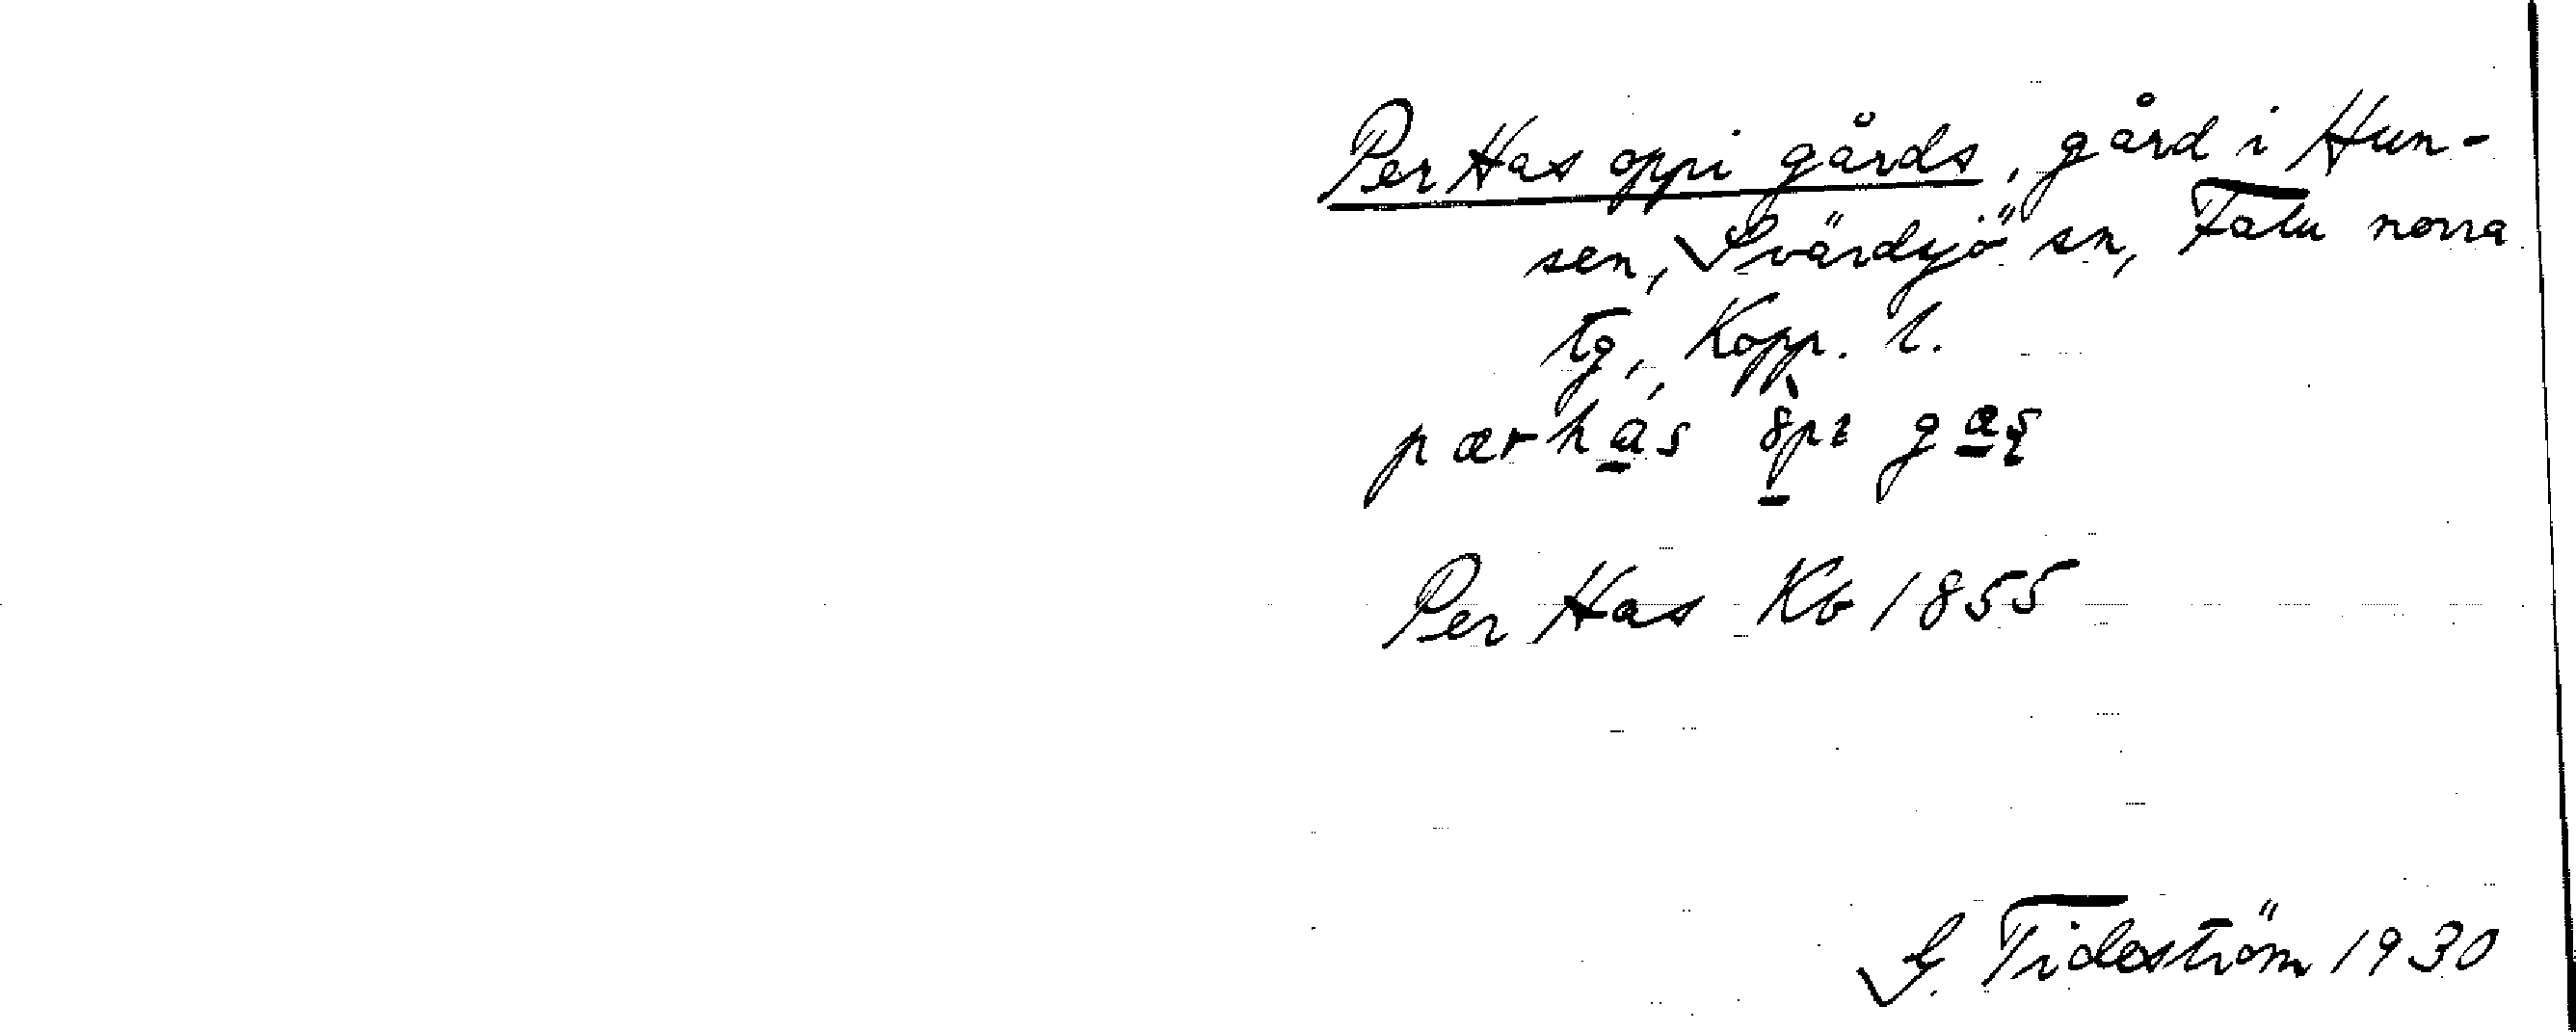 Per Has oppi gårds, gård i Hun-
sen, Svärdsjö sn, Falu norra
tg, Kopp. l.
pærhas
Per Has Kb 1855
G. Tideström 1930